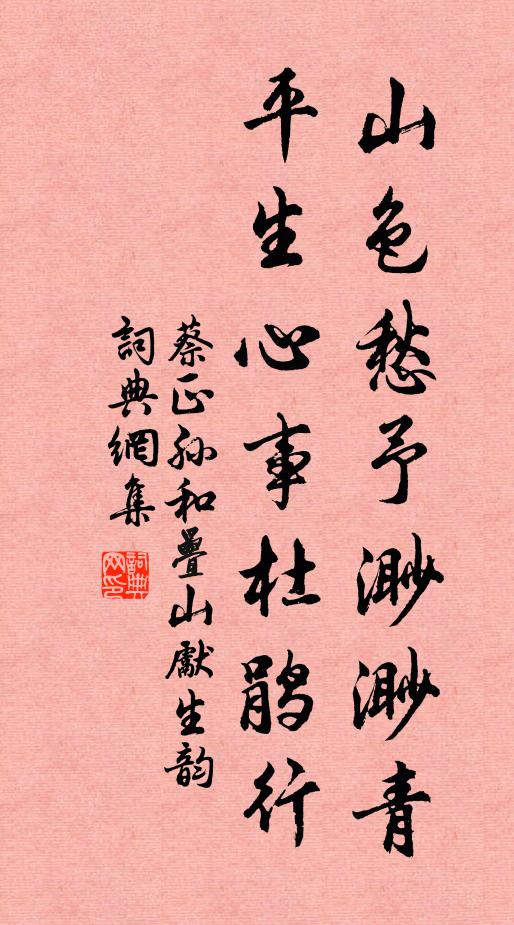 山色愁予渺渺青
平生心事杜鹃行
蔡正孙和疊山獻生韵
詞典網集
詞典网印